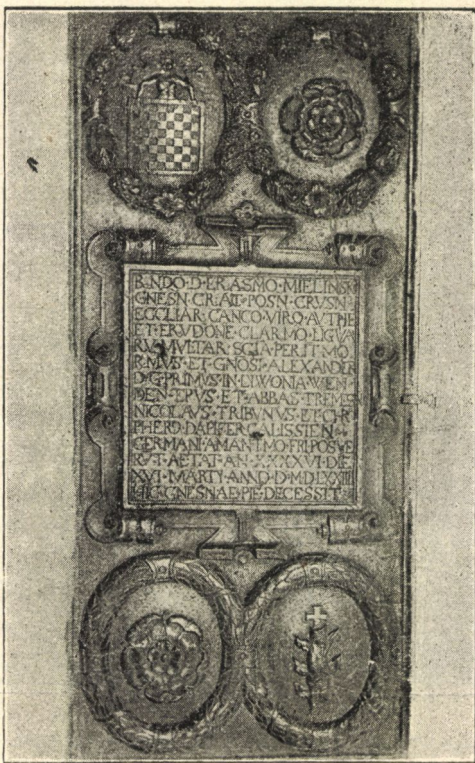 R·NDO·D·ERASMO·MIELINSK
GNESN·CR·AC·POSN·CRVSN
ECCLIAR·CANCO·VIRO·AVTHE
ET·ERVDONE·CLARMO·LIGVA
RV·MVLTAR·SCIA·PERITMO
R·MVS·ET·GNOSI·ALEXANDER
D·G·PRIMVS·IN·LIVONIA·WEN
DEN·EPVS·ET·ABBAS·TREMES
NICOLAVS·TRIBVNVS·ET·CHR
PHERD·DAPIFER·CALISSIEN
GERMANI·AMANTMO·FRI·POSVE
RVT·AETAT·AN·XXXXVI·DIE
XVI·MARTY·ANNO·D·M·D·LXXIII
HIC·GNESNAE·PIE·DECESSIT